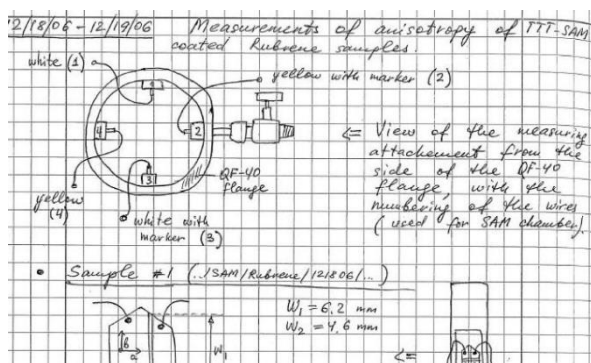 12/18/06 - 12/19/06 Measurements of anisotropy of TTT-SAM
coated Rubrene samples.
white (1)
yellow with marker (2)
1
4
2
3
QF-40
flange
yellow
(4)
white with
marker (3)
<= View of the measuring
attachement from the
side of the QF-40
flange, with the
numbering of the wires
(used for SAM chamber).
• Sample #1 (../SAM/Rubrene/121806/...)
W₁ = 6,2 mm
W₂ = 4,6 mm
b
a
W₁
<=